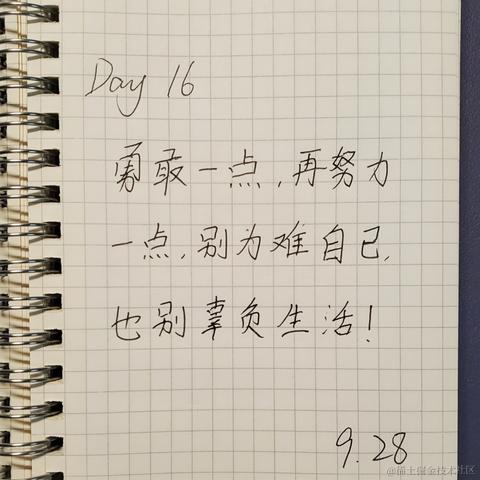 Day 16
勇敢一点,再努力
一点,别为难自己,
也别辜负生活!
9.28
@稀土掘金技术社区